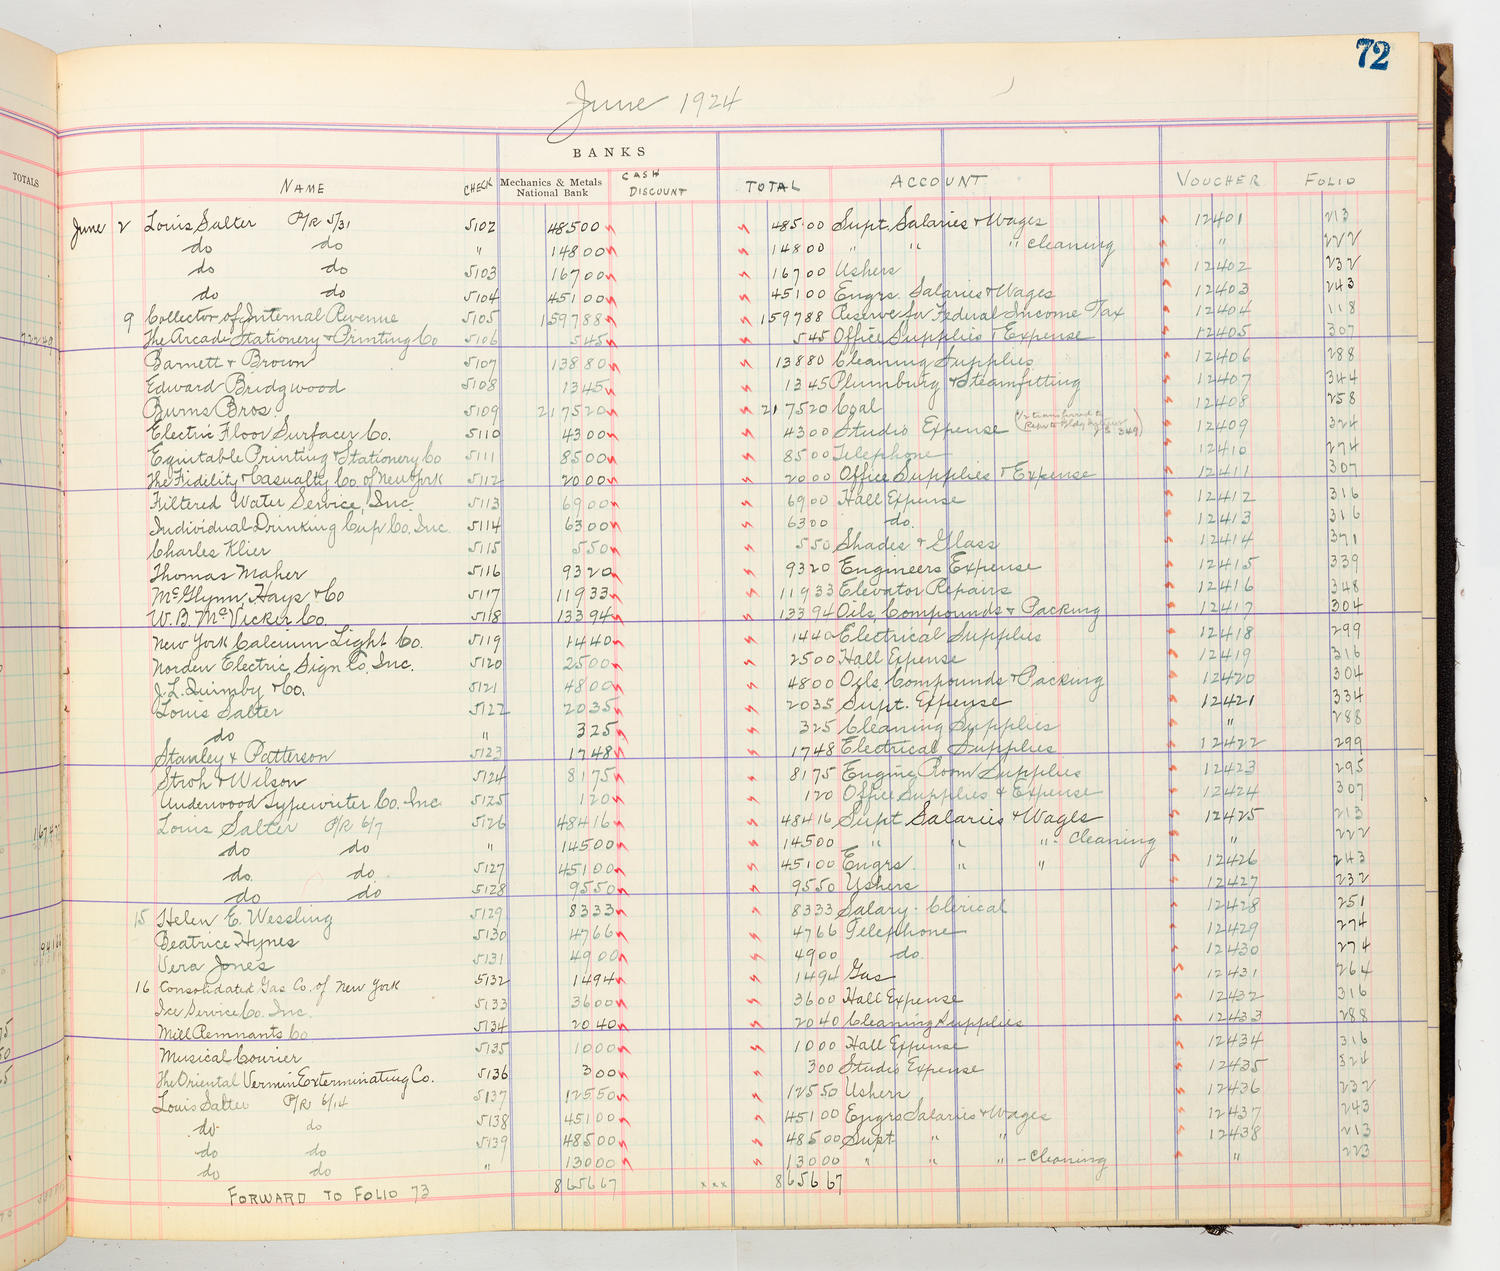 72
June 1924
BANKS
TOTALS NAME CHECK Mechanics & Metals National Bank CASH DISCOUNT TOTAL ACCOUNT VOUCHER FOLIO
June 2 Louis Salter P/R 5/31 5102 485 00 485 00 Supt. Salaries & Wages 12401 213
do do " 148 00 148 00 " " " cleaning " 222
do do 5103 167 00 167 00 Ushers 12402 232
do do 5104 451 00 451 00 Engrs. Salaries & Wages 12403 243
9 Collector of Internal Revenue 5105 1597 88 1597 88 Reserve for Federal Income Tax 12404 118
The Arcade Stationery & Printing Co 5106 5 45 5 45 Office Supplies & Expense 12405 307
Barnett & Brown 5107 138 80 138 80 Cleaning Supplies 12406 288
Edward Bridgwood 5108 13 45 13 45 Plumbing & Steamfitting 12407 344
Burns Bros. 5109 2175 20 2175 20 Coal 12408 258
Electric Floor Surfacer Co. 5110 43 00 43 00 Studio Expense (1/2 transferred to 349) 12409 324
Equitable Printing & Stationery Co 5111 85 00 85 00 Telephone 12410 274
The Fidelity & Casualty Co. of New York 5112 20 00 20 00 Office Supplies & Expense 12411 307
Filtered Water Service, Inc. 5113 69 00 69 00 Hall Expense 12412 316
Individual Drinking Cup Co. Inc. 5114 63 00 63 00 do. 12413 316
Charles Klier 5115 5 50 5 50 Shades & Glass 12414 371
Thomas Maher 5116 93 20 93 20 Engineers Expense 12415 339
McGlynn, Hays & Co 5117 119 33 119 33 Elevator Repairs 12416 348
W. B. McVicker Co. 5118 133 94 133 94 Oils, Compounds & Packing 12417 304
New York Calcium Light Co. 5119 14 40 14 40 Electrical Supplies 12418 299
Norden Electric Sign Co. Inc. 5120 25 00 25 00 Hall Expense 12419 316
J. L. Quimby & Co. 5121 48 00 48 00 Oils, Compounds & Packing 12420 304
Louis Salter 5122 20 35 20 35 Supt. Expense 12421 334
do " 3 25 3 25 Cleaning Supplies " 288
Stanley & Patterson 5123 17 48 17 48 Electrical Supplies 12422 299
Stroh & Wilson 5124 81 75 81 75 Engine Room Supplies 12423 295
Underwood Typewriter Co. Inc 5125 1 20 1 20 Office Supplies & Expense 12424 307
Louis Salter P/R 6/7 5126 484 16 484 16 Supt Salaries & Wages 12425 213
do do " 145 00 145 00 " " " - Cleaning " 222
do. do 5127 451 00 451 00 Engrs. " " 12426 243
do do 5128 95 50 95 50 Ushers 12427 232
15 Helen E. Wessling 5129 83 33 83 33 Salary - Clerical 12428 251
Beatrice Hynes 5130 47 66 47 66 Telephone 12429 274
Vera Jones 5131 49 00 49 00 do. 12430 274
16 Consolidated Gas Co. of New York 5132 14 94 14 94 Gas 12431 264
Ice Service Co. Inc. 5133 36 00 36 00 Hall Expense 12432 316
Mill Remnants Co 5134 20 40 20 40 Cleaning Supplies 12433 288
Musical Courier 5135 10 00 10 00 Hall Expense 12434 316
The Oriental Vermin Exterminating Co. 5136 3 00 3 00 Studio Expense 12435 324
Louis Salter P/R 6/14 5137 125 50 125 50 Ushers 12436 232
do do 5138 451 00 451 00 Engrs Salaries & Wages 12437 243
do do 5139 485 00 485 00 Supt " " 12438 213
do do " 130 00 130 00 " " " - Cleaning " 223
FORWARD TO FOLIO 73 8656 67 x x x 8656 67